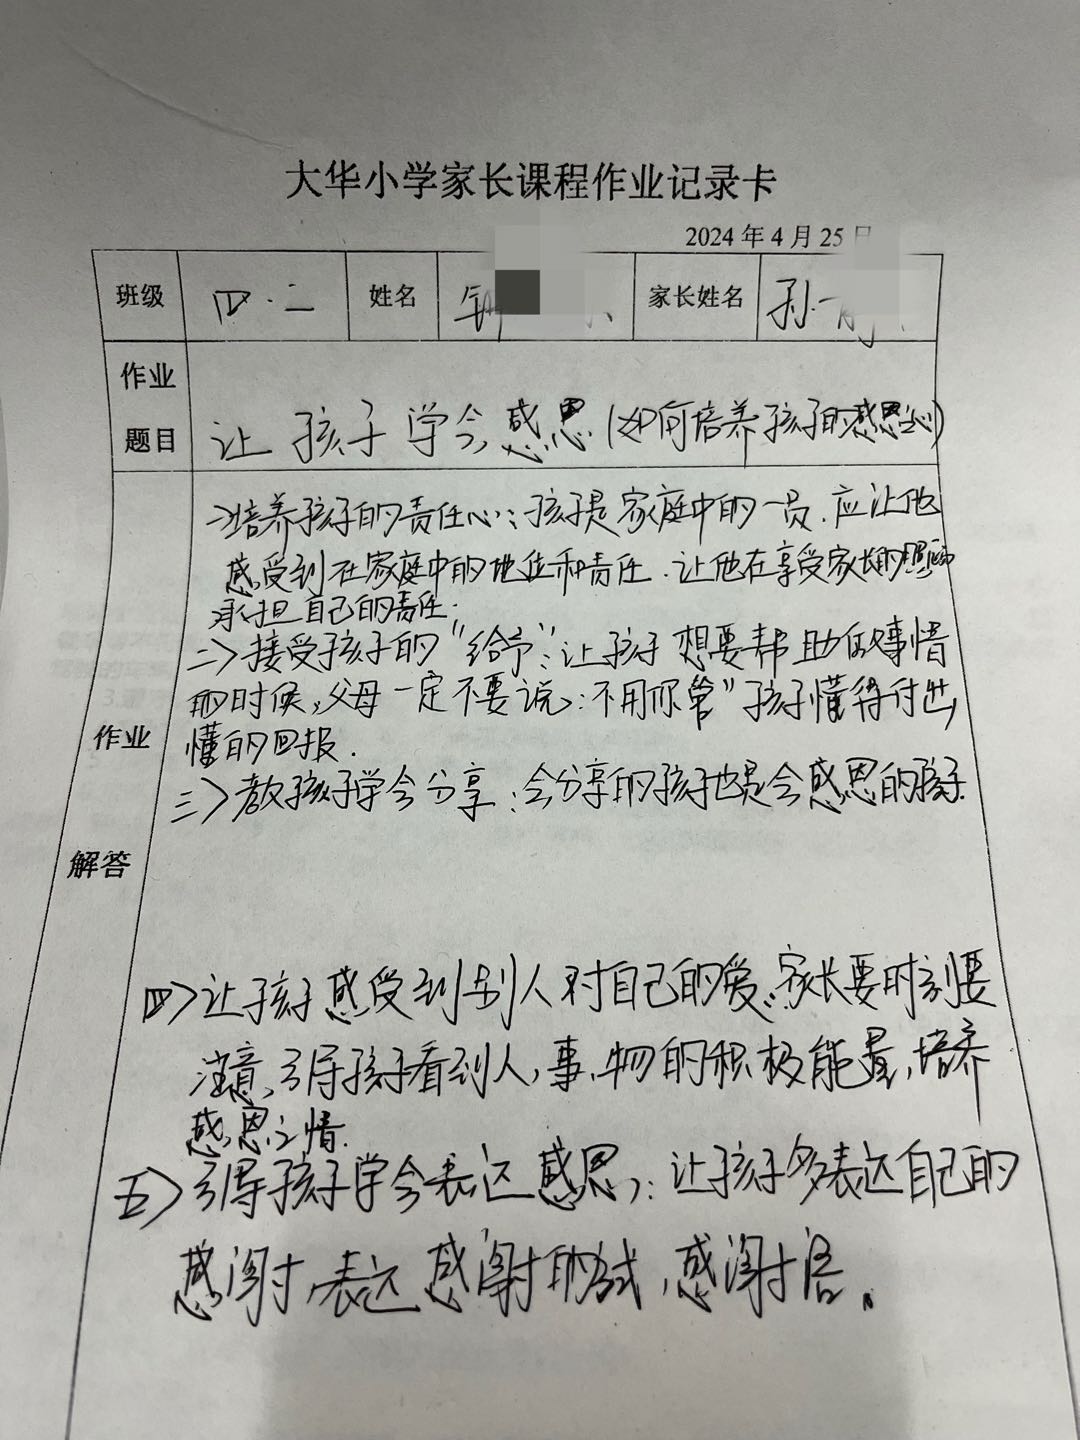 大华小学家长课程作业记录卡
2024年4月25日
班级 四.二 姓名 钟 家长姓名 孙
作业题目 让孩子学会感恩(如何培养孩子的感恩心)
作业解答
一>培养孩子的责任心:孩子是家庭中的一员.应让他
感受到在家庭中的地位和责任.让他在享受家长的照顾
承担自己的责任.
二>接受孩子的"给予":让孩子想要帮助做事情
的时候,父母一定不要说:不用你管"孩子懂得付出,
懂的回报.
三>教孩子学会分享:会分享的孩子也是会感恩的孩子.
四>让孩子感受到别人对自己的爱:家长要时刻要
注意,引导孩子看到人,事,物的积极能量,培养
感恩之情.
五>引导孩子学会表达感恩:让孩子多表达自己的
感谢,表达感谢的方式,感谢语。